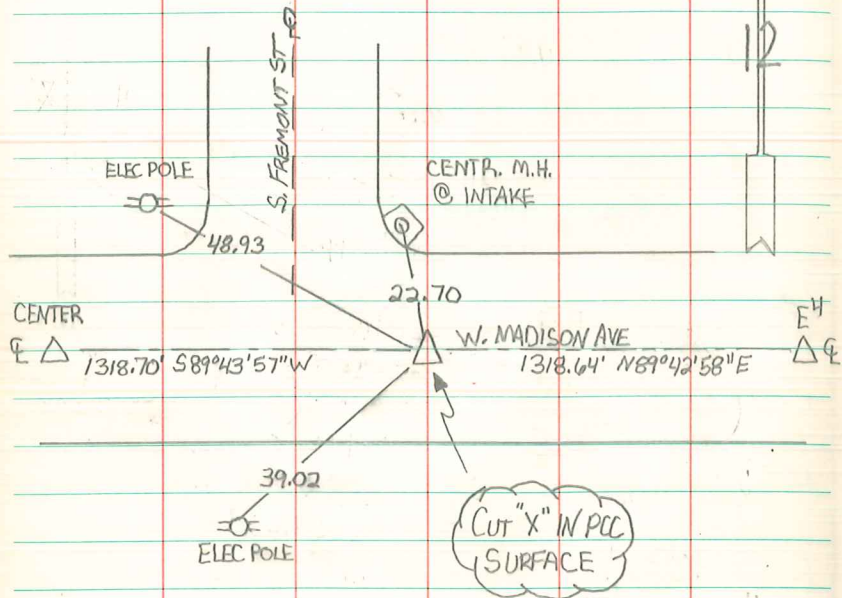 12
S. FREMONT ST
ELEC POLE
CENTR. M.H.
@ INTAKE
48.93
22.70
CENTER
E4
℄
W. MADISON AVE
℄
1318.70' S89°43'57"W
1318.64' N89°42'58"E
39.02
ELEC POLE
CUT "X" IN PCC
SURFACE